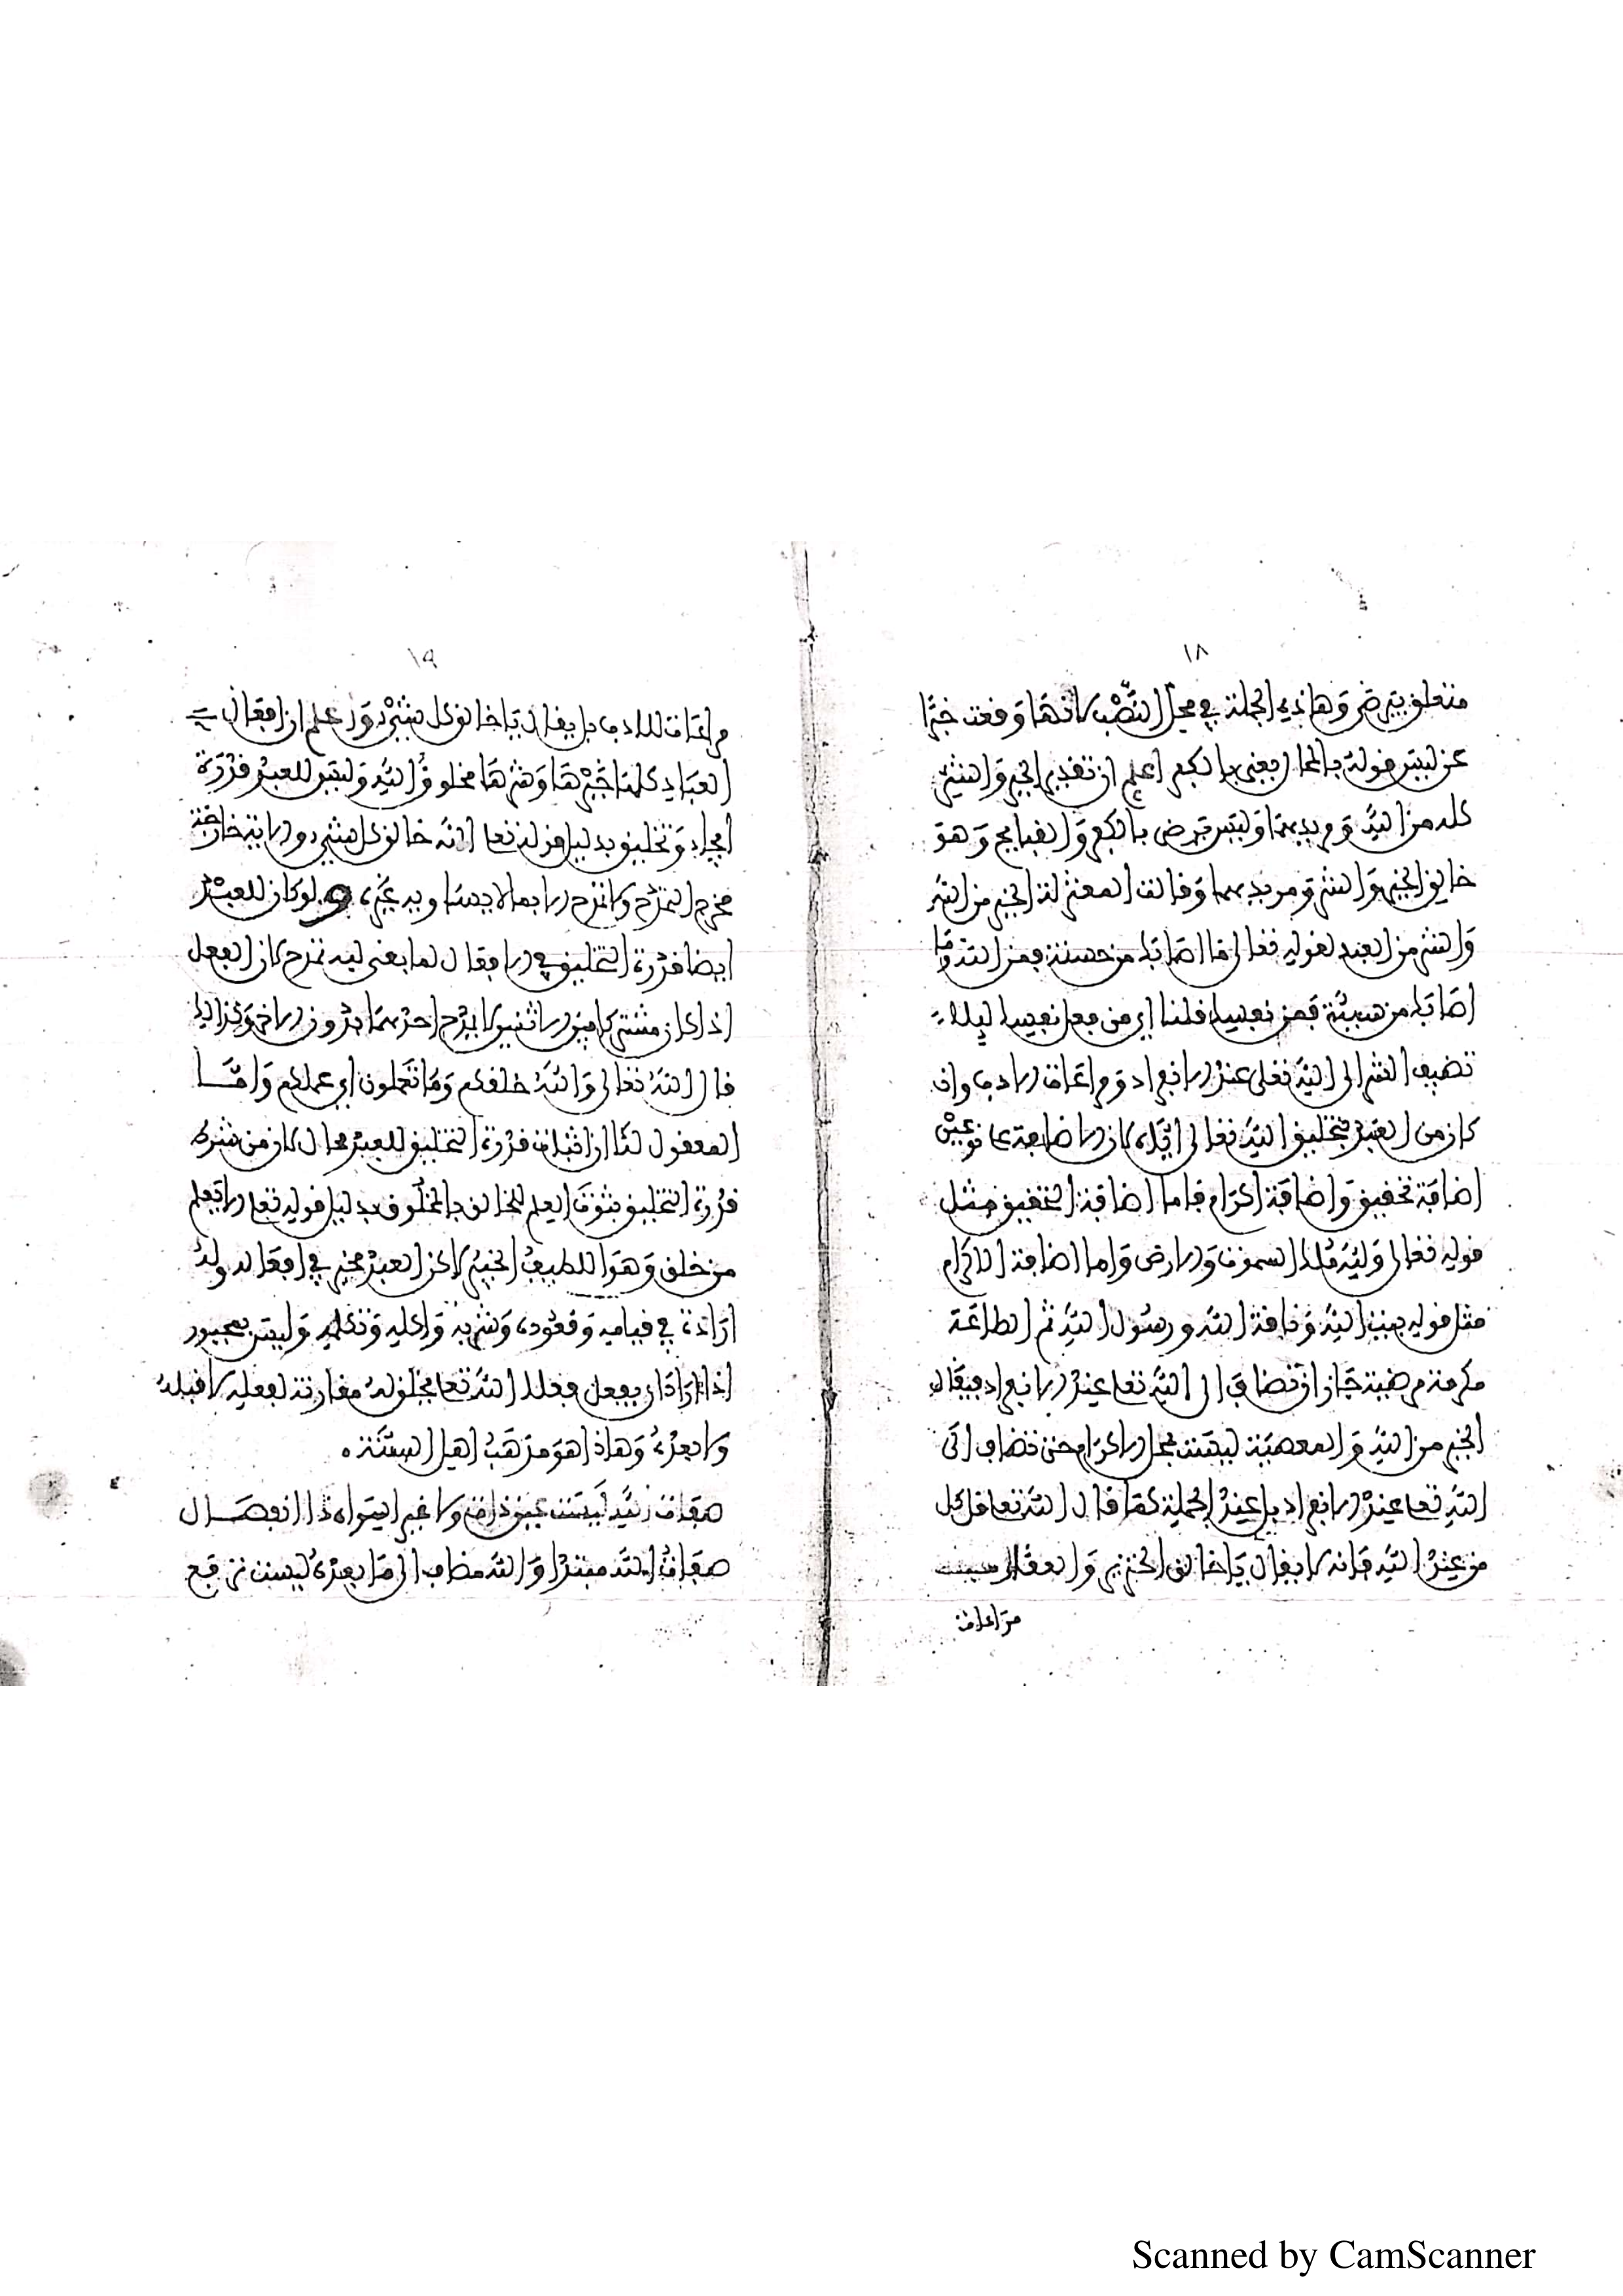 ١٨
متعلق بيرضى وهاذه الجملة في محل النصب لانها وقعت خبرا
عن ليس قوله بالمحال يعنى بالكفر اعلم ان تقدير الخير والشر
كله من الله ومريدهما وليس يرضى بالكفر والقبايح وهو
خالق الخير والشر ومريدهما وقالت المعتزلة الخير من الله
والشر من العبد لقوله تعالى ما اصابك من حسنة فمن الله وما
اصابك من سيئة فمن نفسك قلنا اي من فعل نفسك ليلا
تضيف الشر الى الله تعلى عند الانفراد ومراعات الادب وان
كان من العبد بتخليق الله تعالى اياه كان الاضافة على نوعين
اضافة تحقيق واضافة اكرام فاما اضافة التحقيق مثل
قوله تعالى ولله ملك السموت والارض واما اضافة الاكرام
مثل قوله بيت الله وناقة الله ورسول الله ثم الطاعة
مكرمة مرضية جاز ان تضاف الى الله تعا عند الانفراد فيقال
الخير من الله والمعصية ليست بمحل الاكرام حتى تضاف الى
الله تعا عند الانفراد بل عند الجملة كما قال الله تعا قل كل
من عند الله فانه لا يقال يا خالق الخنزير والعقارب
مراعات
١٩
مراعات للادب بل يقال يا خالق كل شيء واعلم ان افعال
العباد كلها خيرها وشرها مخلوق الله وليس للعبد قدرة
ايجاد وتخليق بدليل قوله تعا الله خالق كل شيء ولا
مخرج التمدح ولا تمدح الا بما لا يساويه غيره ولو كان للعبد
ايضا قدرة التخليق في الافعال لما بقى ليه تمدح لان الفعل
اذا كان مشتركا بين الاثنين لا يمدح احدهما بدون الاخر وكذالك
قال الله تعالى والله خلقكم وما تعملون اي عملكم واما
المعقول لنا ان اثبات قدرة التخليق للعبد محال لان من شرط
قدرة التخليق ثبوت العلم للخالق بالمخلوق بدليل قوله تعا الا يعلم
من خلق وهو اللطيف الخبير لاكن العبد مخير في افعاله وله
ارادة في قيامه وقعوده وشربه واكله وتكلمه وليس بمجبور
اذا اراد ان يفعل فعلا الله تعا يخلق له مقارنة لفعله لا قبله
ولا بعده وهاذا هو مذهب اهل السنة
صفات الله ليست عين ذات ولا غير اسواه ذا انفصال
صفات الله مبتدا والله مضاف الى ما بعده ليست ترفع
Scanned by CamScanner